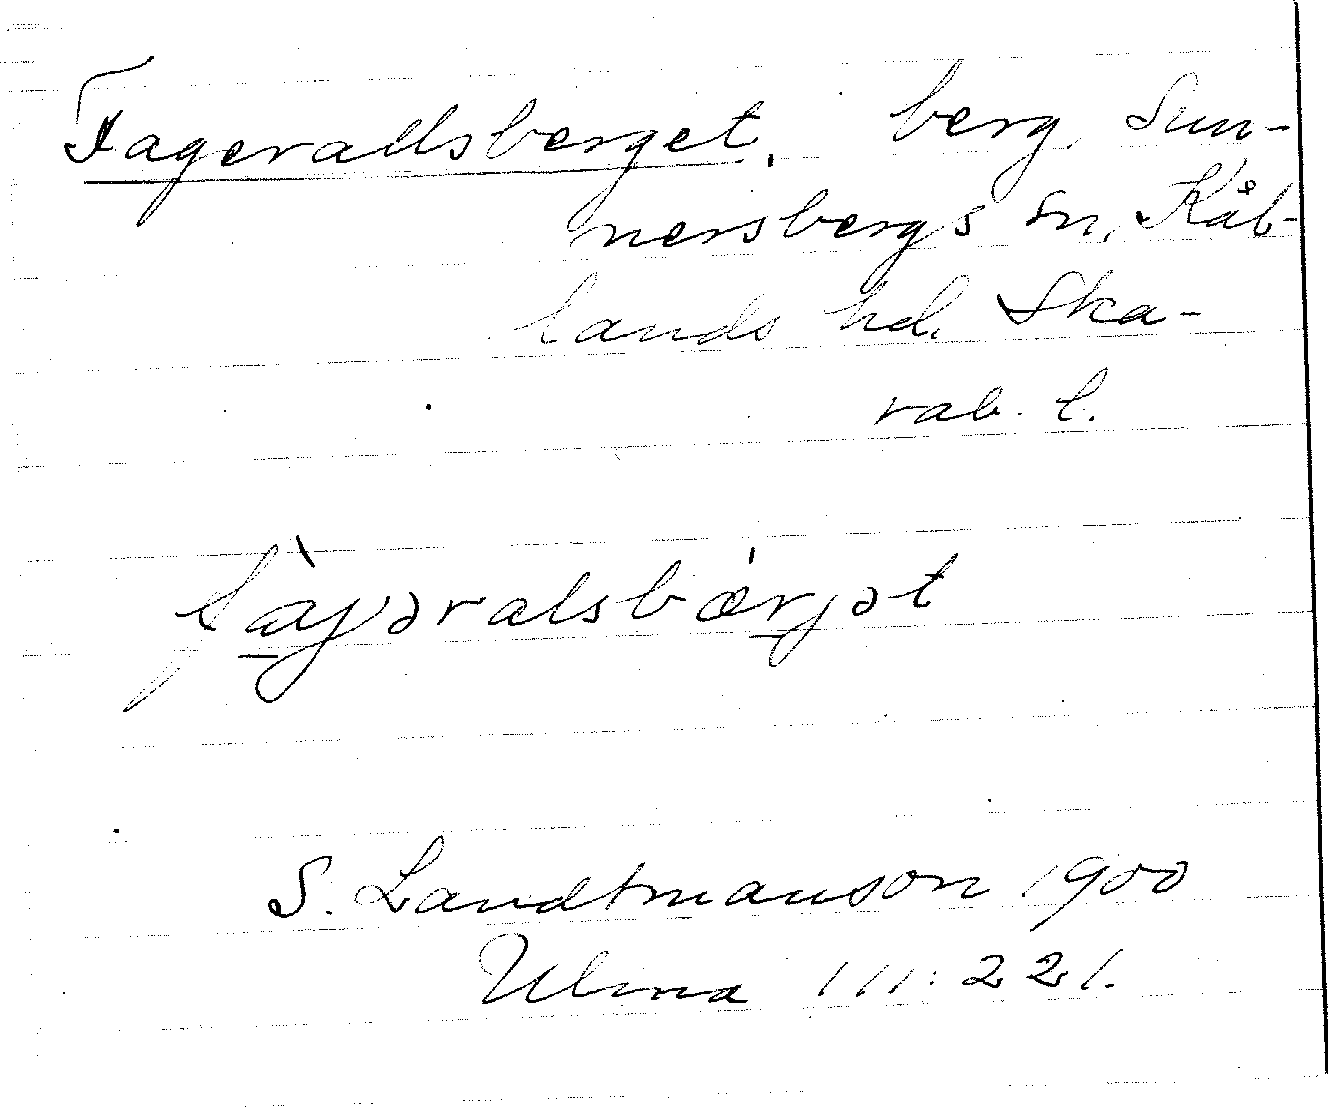 Fagerallsberget, berg, Sun-
nersbergs sn, Kål-
lands hd. Ska-
rab. l.
fàjəralsbǽrjət
S. Landtmanson 1900
Ulma 111:221.